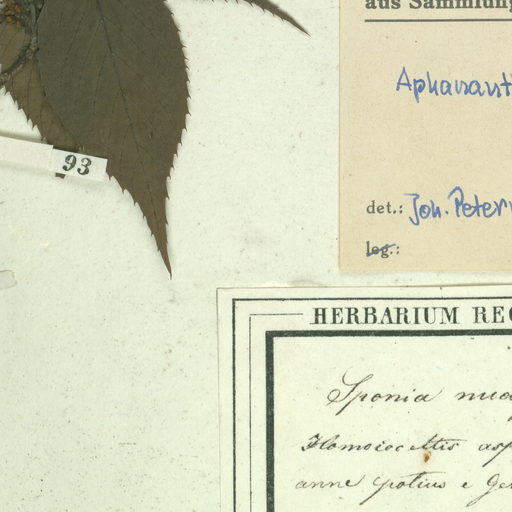 aus Sammlung
Aphanant
93
det.: Joh. Peter
leg.:
HERBARIUM REG
Sponia nud
Homoioceltis asp
anne potius e Gen